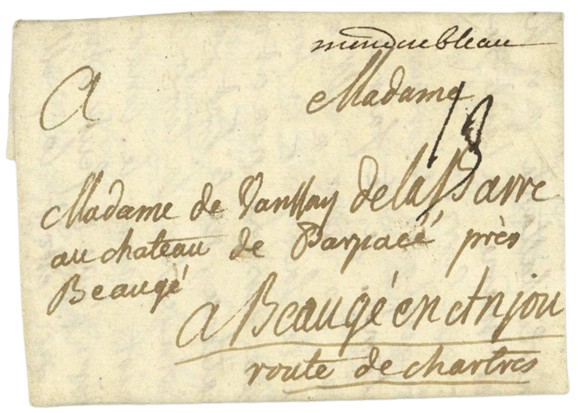 A Madame
13
Madame de Vanssay de la Barre
au chateau de Parpacé près
Beaugé
a Beaugé en Anjou
route de chartres